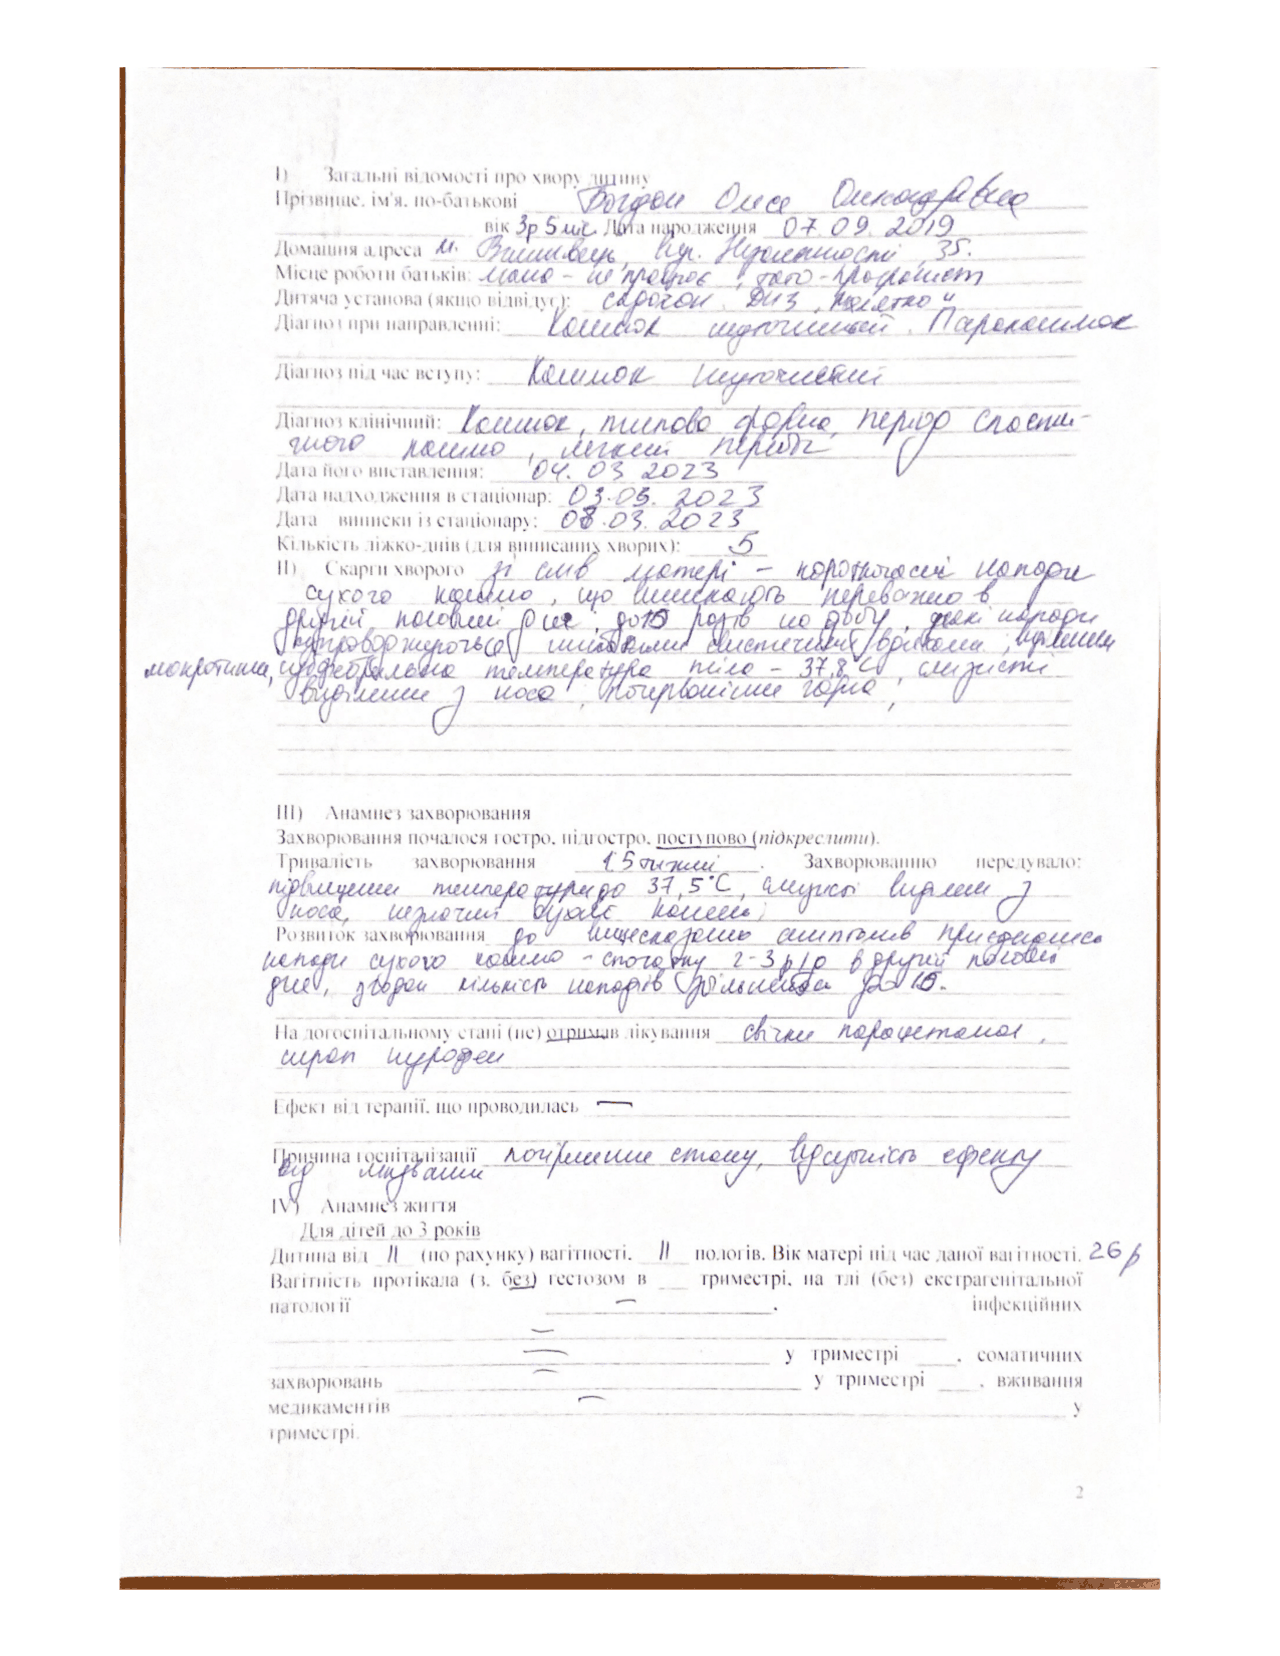 І) Загальні відомості про хвору дитину
Прізвище, ім'я, по-батькові Богдан Олеся Олександрівна
вік 3р 5 міс. Дата народження 07.09.2019
Домашня адреса м. Вишнівець, вул. Незалежності, 35.
Місце роботи батьків: мама – не працює, тато – програміст
Дитяча установа (якщо відвідує): садочок ДНЗ „Малятко"
Діагноз при направленні: Кашлюк Паракашлюк
Діагноз під час вступу: Кашлюк
Діагноз клінічний: Кашлюк, типова форма, період спасти-
чного кашлю, легкий перебіг
Дата його виставлення: 04.03 2023
Дата надходження в стаціонар: 03.03.2023
Дата виписки із стаціонару: 08.03.2023
Кількість ліжко-днів (для виписаних хворих): 5
ІІ) Скарги хворого зі слів матері – короткочасні напади
сухого кашлю, що виникають переважно в
другій половині дня, до 10 разів на добу, деякі напади
супроводжуються свистячими вдихами, виділенням
мокротиння, субфебрильна температура тіла – 37,8°С, слизисті
виділення з носа, почервоніння горла,
ІІІ) Анамнез захворювання
Захворювання почалося гостро, підгостро, поступово (підкреслити).
Тривалість захворювання 1,5 тижні. Захворюванню передувало:
підвищення температури до 37,5°С, слизисті виділення з
носа, незначний сухий кашель,
Розвиток захворювання до вищесказаних симптомів приєднались
напади сухого кашлю – спочатку 2-3 р/д в другій половині
дня, згодом кількість нападів збільшилась до 10.
На догоспітальному етапі (не) отримав лікування свічки парацетамол,
сироп нурофен
Ефект від терапії, що проводилась –
Причина госпіталізації погіршення стану, відсутність ефекту
від лікування
IV) Анамнез життя
Для дітей до 3 років
Дитина від ІІ (по рахунку) вагітності, ІІ пологів. Вік матері під час даної вагітності, 26 р
Вагітність протікала (з, без) гестозом в ___ триместрі, на тлі (без) екстрагенітальної
патології –, інфекційних
–
– у триместрі ___, соматичних
захворювань – у триместрі ___, вживання
медикаментів – у
триместрі.
2